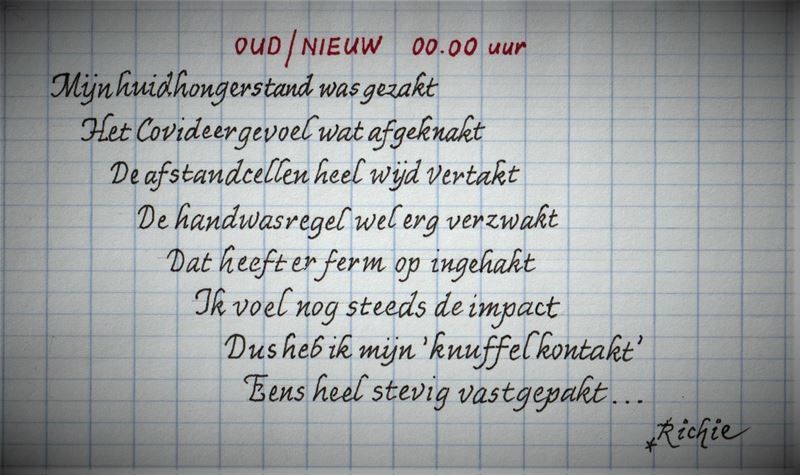 OUD/NIEUW 00.00 uur
Mijn huidhongerstand was gezakt
Het Covideergevoel wat afgeknakt
De afstandcellen heel wijd vertakt
De handwasregel wel erg verzwakt
Dat heeft er ferm op ingehakt
Ik voel nog steeds de impact
Dus heb ik mijn 'knuffelkontakt'
Eens heel stevig vastgepakt...
*Richie